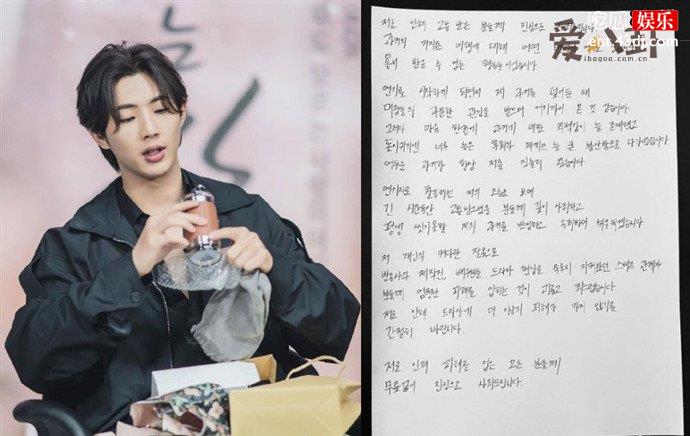 윤안娱乐
ent.43di.com
爱八卦
ibagua.com.cn
저로 인해 고통 받은 분들께 진심으로
과거에 저지른 비행에 대해 어떤
용서 받을 수 없는 행동들이었습니다.
연기를 시작하게 되면서 제 과거를 덮어둔 채
대중들의 과분한 관심을 받으며 여기까지 온 것 같습니다.
그러나 마음 한켠에 과거에 대한 죄책감이 늘 존재했고
돌이키기엔 너무 늦은 후회가 저에게는 늘 큰 불안함으로 다가왔습니다.
어두운 과거가 항상 저를 짓눌러 왔습니다.
연기자로 활동하는 저의 모습을 보며
긴 시간동안 고통받으셨을 분들께 깊이 사죄하고
평생 씻지못할 저의 과거를 반성하고 뉘우치겠습니다
저 개인의 커다란 잘못으로
방송사와 제작진, 배우들 드라마 현장을 묵묵히 지켜왔던 스태프 관계자
분들께 엄청난 피해를 입히는 것이 괴롭고 죄스럽습니다
저로 인해 드라마에 더 이상의 피해가 가지 않기를
간절히 바랍니다.
저로 인해 피해를 입은 모든 분들께
무릎꿇어 진심으로 사죄드립니다.